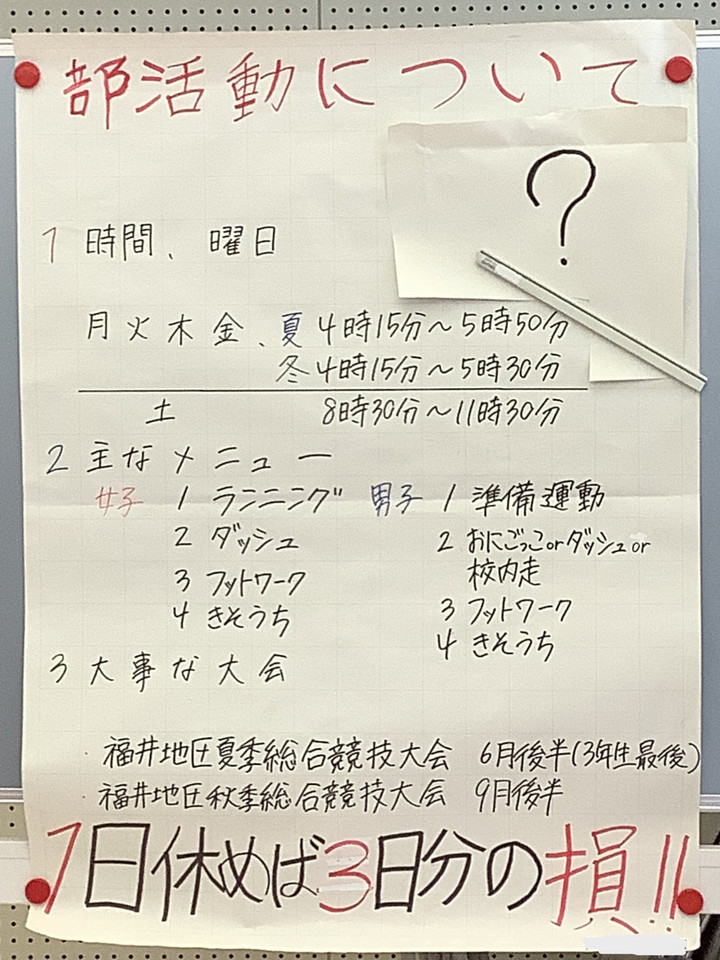 部活動について
?
1 時間、曜日
月火木金、夏 4時15分～5時50分
冬 4時15分～5時30分
土 8時30分～11時30分
2 主なメニュー
女子 1 ランニング
2 ダッシュ
3 フットワーク
4 きそうち
男子 1 準備運動
2 おにごっこorダッシュor
校内走
3 フットワーク
4 きそうち
3 大事な大会
・福井地区夏季総合競技大会 6月後半(3年生最後)
・福井地区秋季総合競技大会 9月後半
1日休めば3日分の損!!